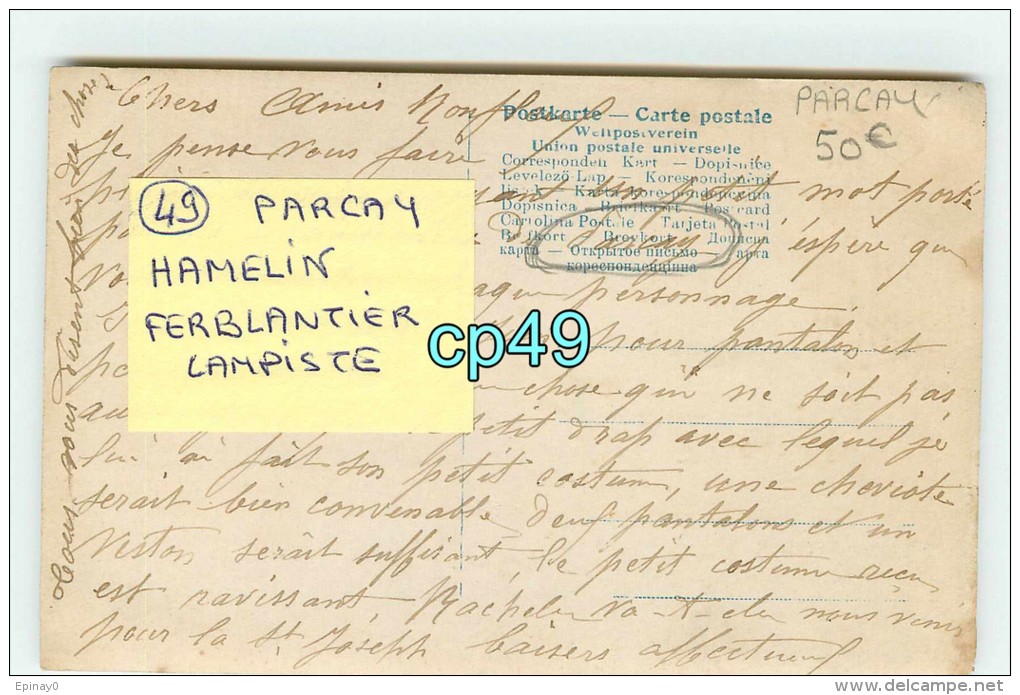 Chers Amis
Postkarte — Carte postale
Weltpostverein
Union postale universelle
Correspondenz Karte — Dopisnice
Levelező-Lap — Korespondencni
listek — Karta korespondencyjna
Dopisnica — Briefkaart — Postcard
Cartolina Postale — Tarjeta Postal
Brefkort — Brevkort — Дописна
карта — Открытое письмо — карта
кореспонденцiйна
PARCAY
50€
Je pense vous faire
un petit mot porté
j'espère que
personnage
pour pantalon et
chose qui ne soit pas
petit drap avec lequel je
lui ai fait son petit costume, une cheviote
serait bien convenable deux pantalons et un
veston serait suffisant, le petit costume reçu
est ravissant Rachel va-t-elle nous venir
pour la St Joseph baisers affectueux
Tous vous disent bien des choses
49 PARCAY
HAMELIN
FERBLANTIER
LAMPISTE
cp49
Epinay0
delcampe.net